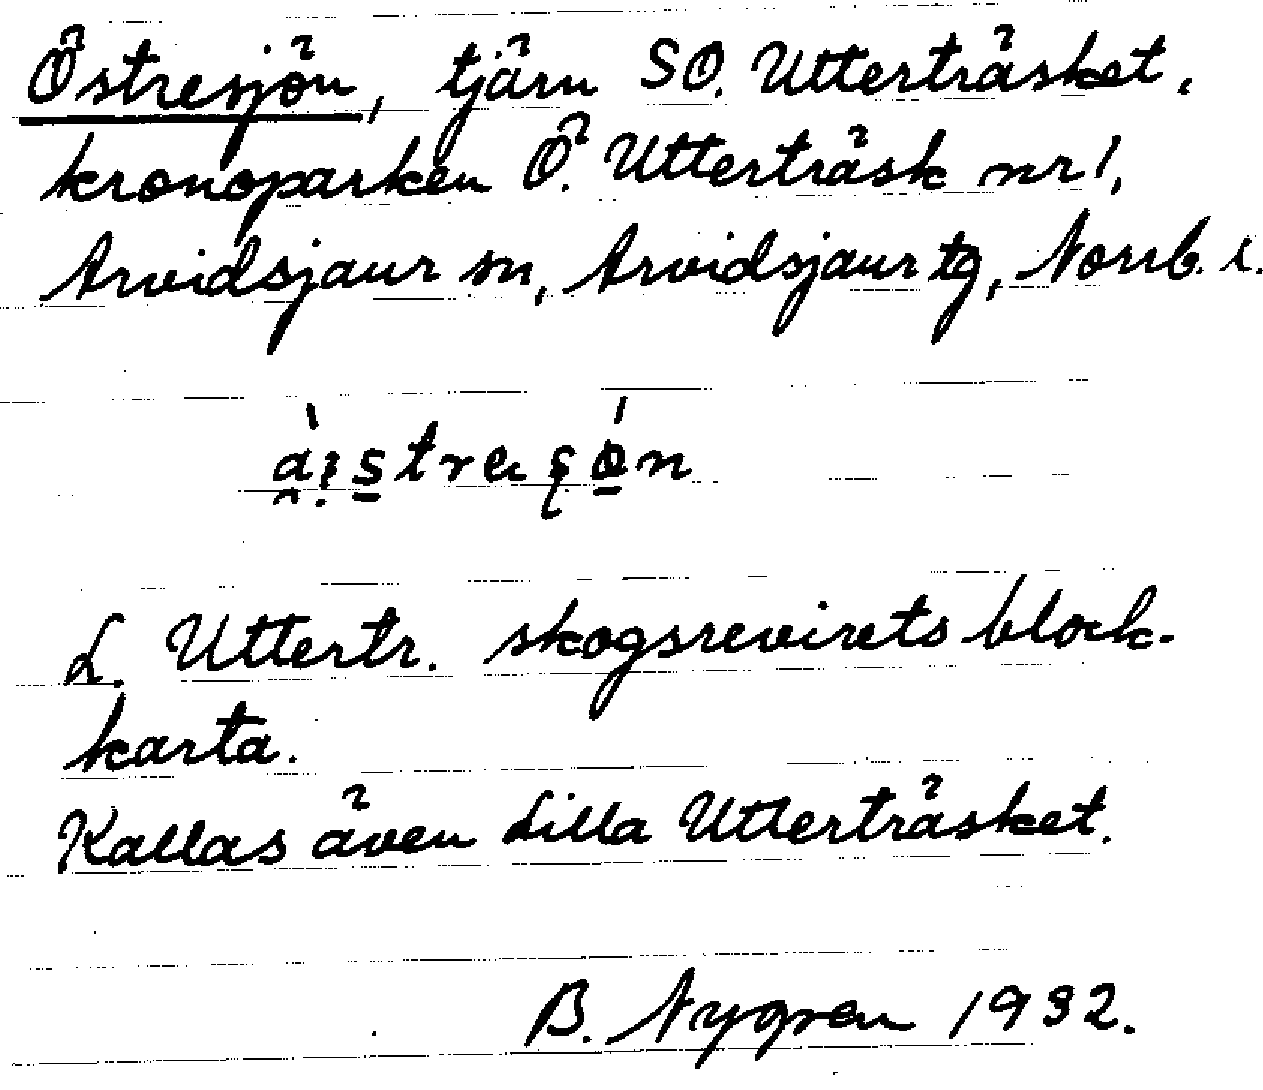 Östresjön, tjärn SO. Utterträsket,
kronoparken Ö. Utterträsk nr 1,
Arvidsjaur sn, Arvidsjaur tg, Norrb. l.
L. Uttertr. skogsrevirets block-
karta.
Kallas även Lilla Utterträsket.
B. Nygren 1932.